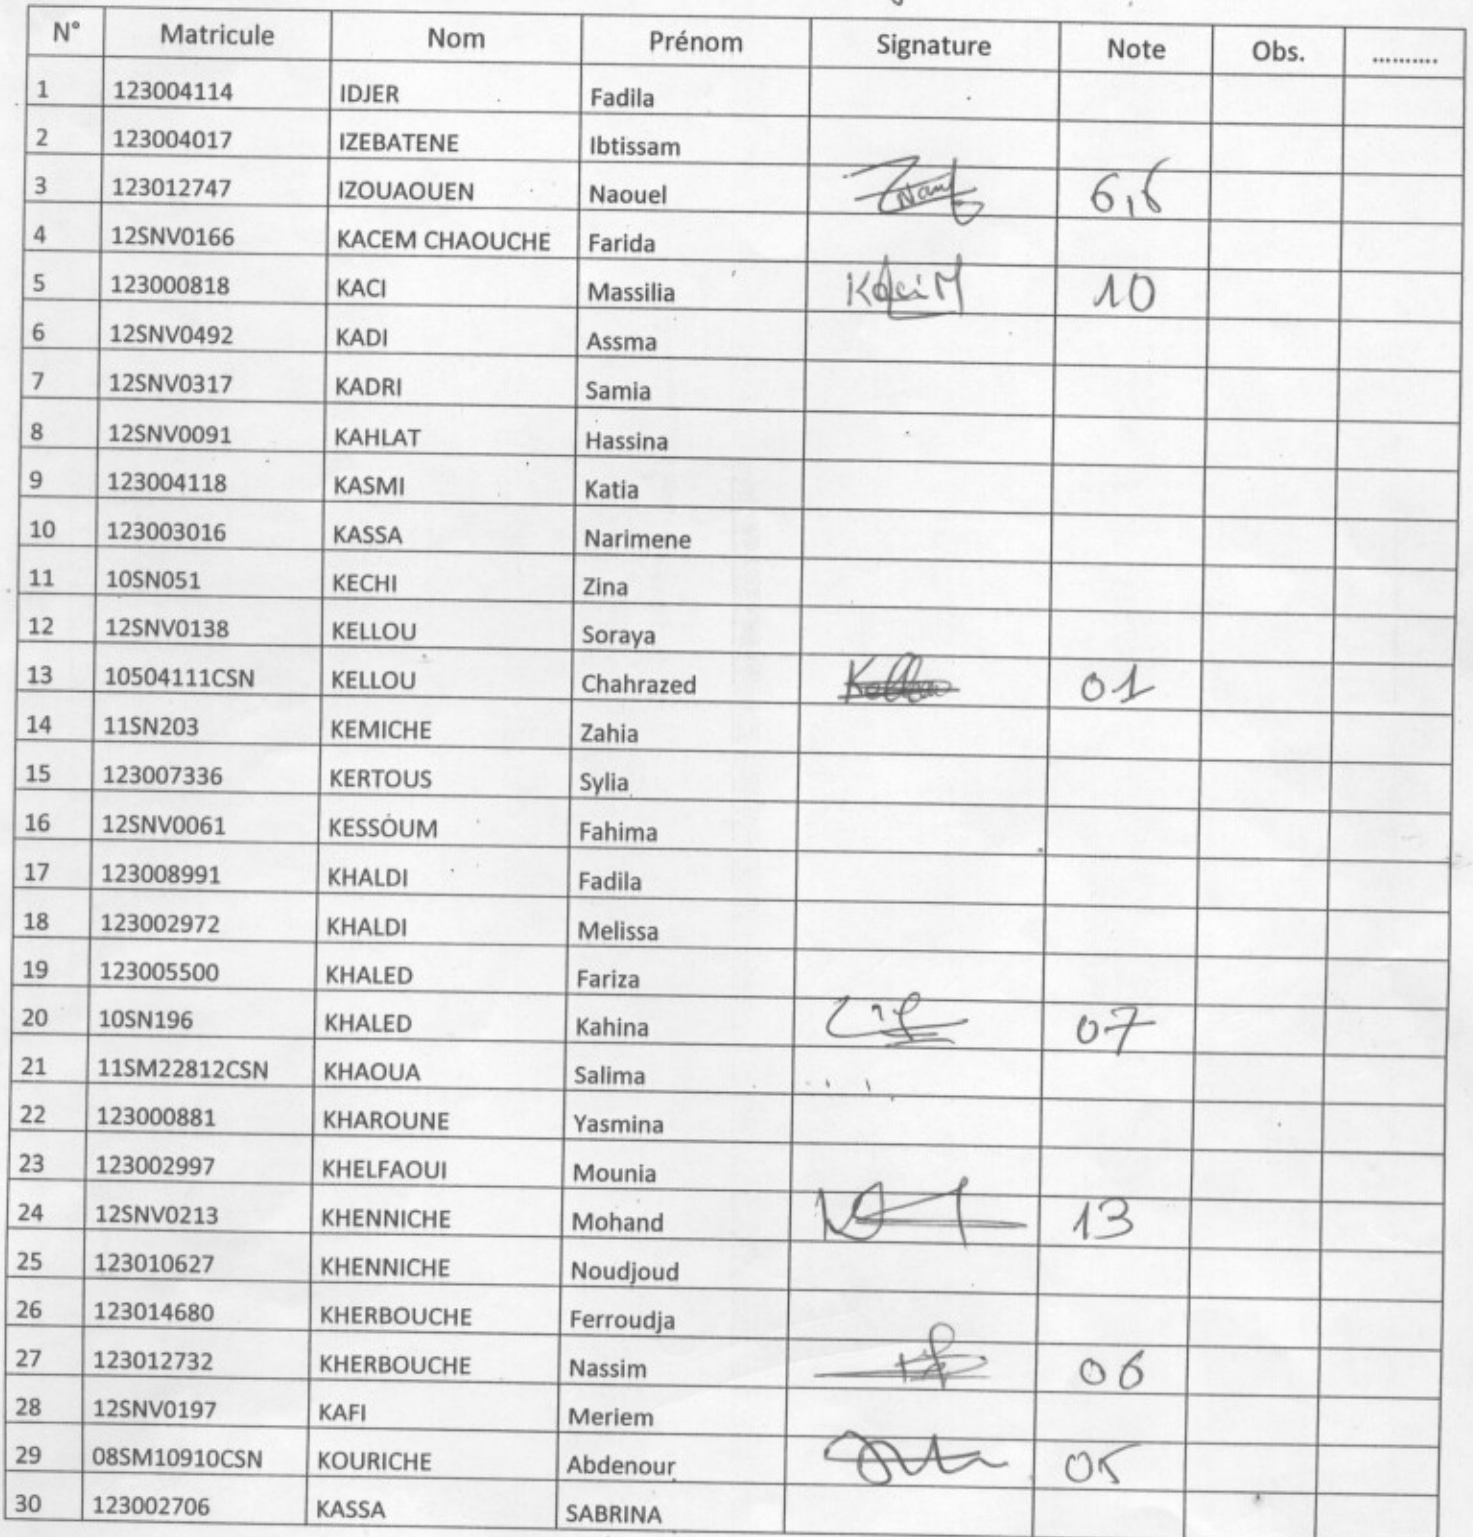 N° Matricule Nom Prénom Signature Note Obs. ..........
1 123004114 IDJER Fadila
2 123004017 IZEBATENE Ibtissam
3 123012747 IZOUAOUEN Naouel
4 12SNV0166 KACEM CHAOUCHE Farida
5 123000818 KACI Massilia Kaci M 10
6 12SNV0492 KADI Assma
7 12SNV0317 KADRI Samia
8 12SNV0091 KAHLAT Hassina
9 123004118 KASMI Katia
10 123003016 KASSA Narimene
11 10SN051 KECHI Zina
12 12SNV0138 KELLOU Soraya
13 10504111CSN KELLOU Chahrazed 01
14 11SN203 KEMICHE Zahia
15 123007336 KERTOUS Sylia
16 12SNV0061 KESSOUM Fahima
17 123008991 KHALDI Fadila
18 123002972 KHALDI Melissa
19 123005500 KHALED Fariza
20 10SN196 KHALED Kahina 07
21 11SM22812CSN KHAOUA Salima
22 123000881 KHAROUNE Yasmina
23 123002997 KHELFAOUI Mounia
24 12SNV0213 KHENNICHE Mohand 13
25 123010627 KHENNICHE Noudjoud
26 123014680 KHERBOUCHE Ferroudja
27 123012732 KHERBOUCHE Nassim 06
28 12SNV0197 KAFI Meriem
29 08SM10910CSN KOURICHE Abdenour 05
30 123002706 KASSA SABRINA